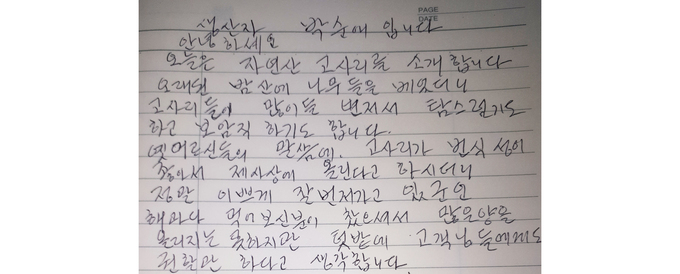 PAGE
DATE
생산자 박순애 입니다
안녕하세요
오늘은 자연산 고사리를 소개합니다
오래된 밤산에 나무들을 베었더니
고사리들이 많이들 번져서 탐스럽기도
하고 보암직 하기도 합니다.
옛어르신들의 말씀에. 고사리가 번식성이
좋아서 제사상에 올린다고 하시더니
정말 이쁘게 잘번져가고 있군요
해마다 먹어보신분이 찾으셔서 많은양을
올리지는 못하지만 텃밭에 고객님들에게도
권할만 하다고 생각합니다.